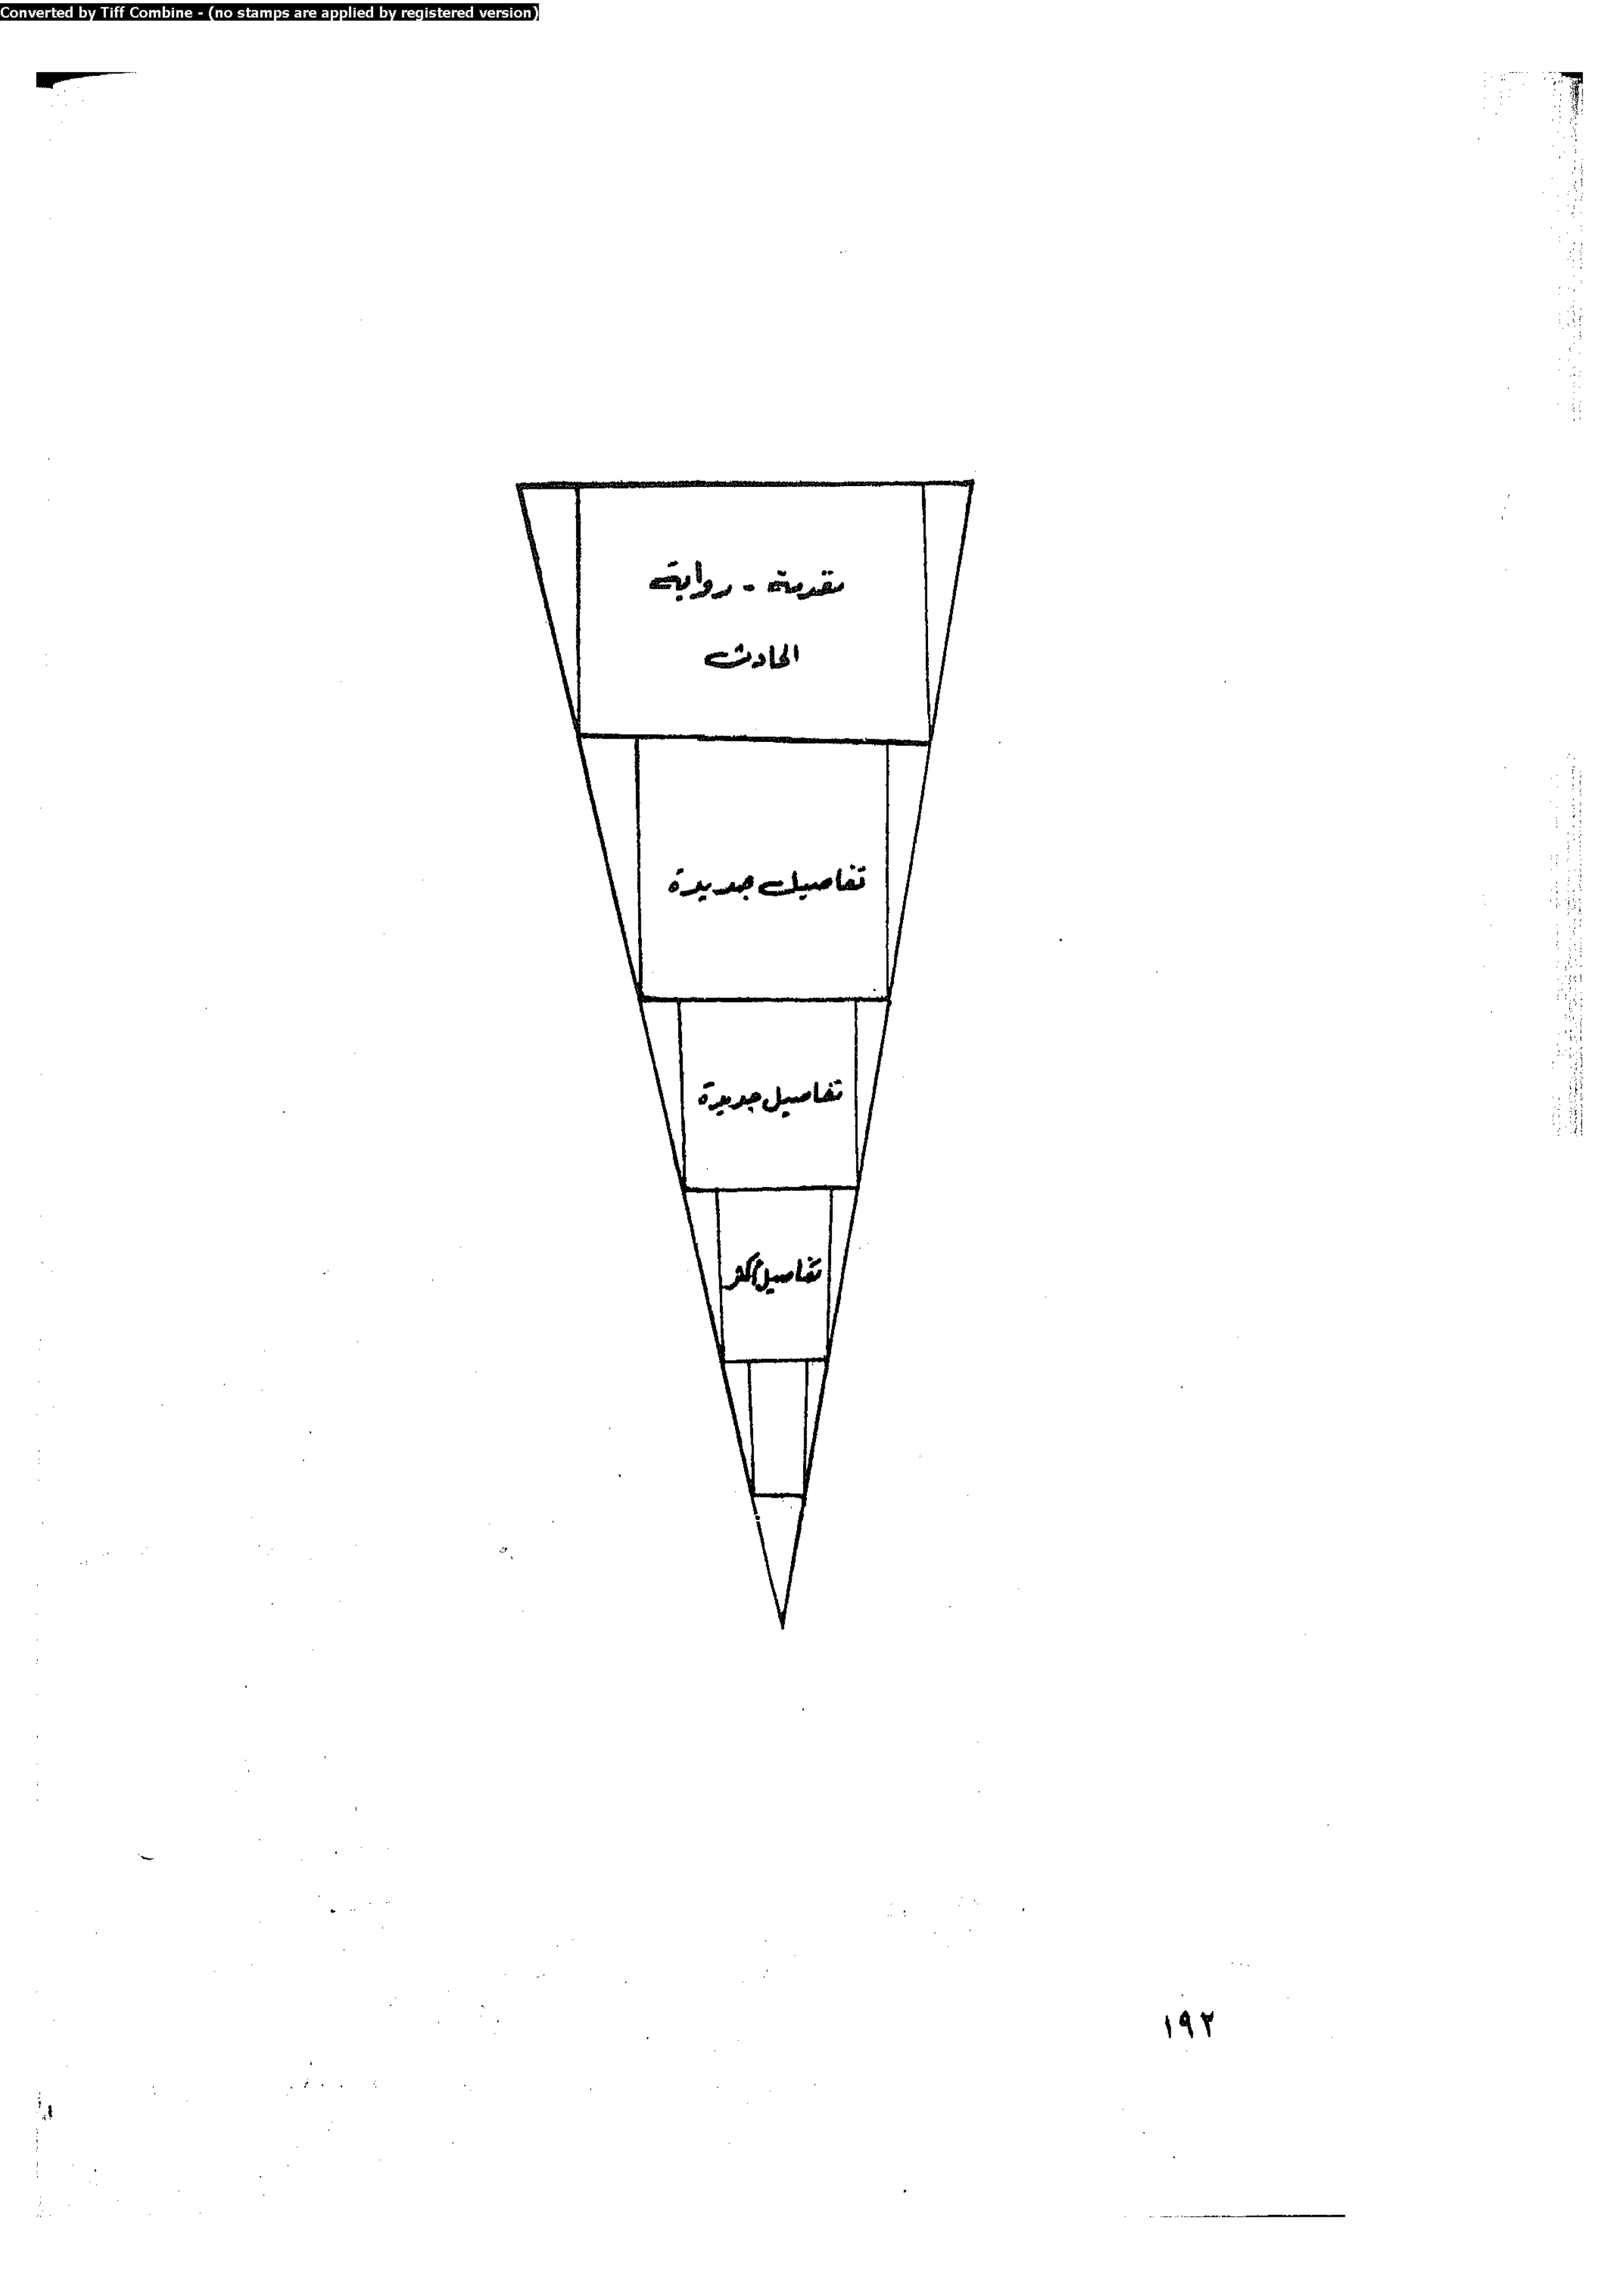 Converted by Tiff Combine - (no stamps are applied by registered version)
مقدمة - رواية
الحادث
تفاصيل جديدة
تفاصيل جديدة
تفاصيل أكثر
١٩٢